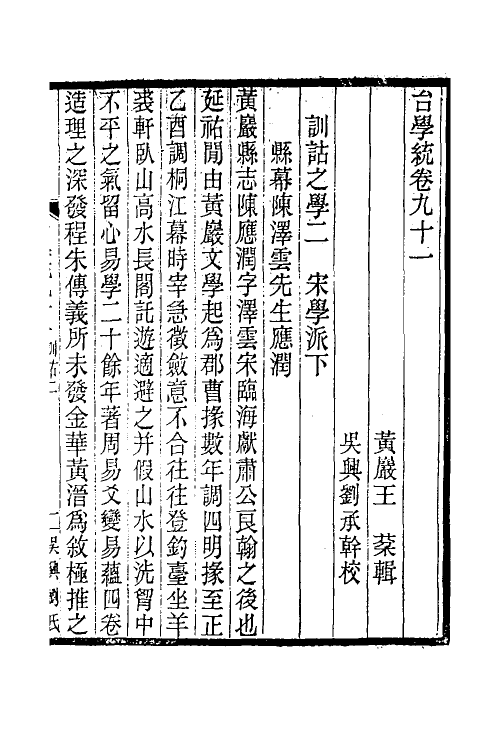 台學統卷九十一
黃巖王　棻輯
吳興劉承幹校
訓詁之學二　宋學派下
縣幕陳澤雲先生應潤
黃巖縣志陳應潤字澤雲宋臨海獻肅公良翰之後也
延祐閒由黃巖文學起爲郡曹掾數年調四明掾至正
乙酉調桐江幕時宰急徵斂意不合往往登釣臺坐羊
裘軒臥山高水長閣託遊適避之并假山水以洗胷中
不平之氣留心易學二十餘年著周易爻變易蘊四卷
造理之深發程朱傳義所未發金華黃溍爲敘極推之
吳興劉氏